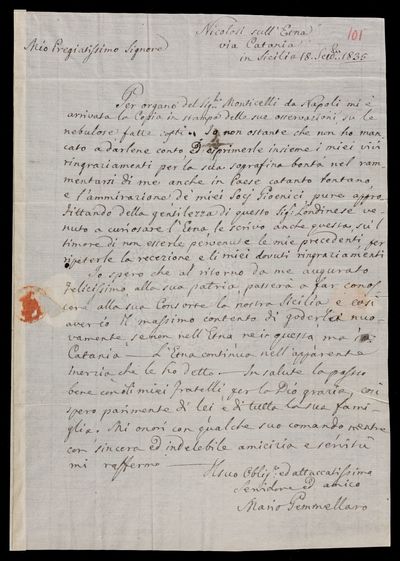 Nicolosi sull'Etna
101
Mio Pregiatissimo Signore
via Catania
in Sicilia 18. 1836
Per organo del Sigr. Monticelli da Napoli mi è
arrivata la Copia in stampa delle sue osservazioni su le
nebulose fatte costì. Io non ostante che non ho man
cato a darlene conto ed esprimerle insieme i miei vivi
ringraziamenti per la sua soprafina bontà nel ram
mentarsi di me anche in Paese cotanto lontano
e l'ammirazione de' miei Socj Gioenici pure appro
fittando della gentilezza di questo Sigr. Londinese ve
nuto a curiosare l'Etna le scrivo anche questa sul
timore di non esserle pervenute le mie precedenti per
ripeterle la recezione e li miei dovuti ringraziamenti
Io spero che al ritorno da me augurato
felicissimo alla sua patria, passerà a far conos
cere alla sua Consorte la nostra Sicilia e così
averò il massimo contento di goderlei nuo
vamente se non nell'Etna ne in questa, ma in
Catania — L'Etna continua nell'apparente
Inerzia che le ho detto — In salute la passo
bene con li miei fratelli, per la Dio grazia, così
spero parimente di lei è di tutta la sua fami
glia. Mi onori con qualche suo comando mentre
con sincera ed indelebile amicizia e servitù
mi raffermo —
Il suo Obligo. ed attaccatissimo
Servidore ed amico
Mario Gemmellaro